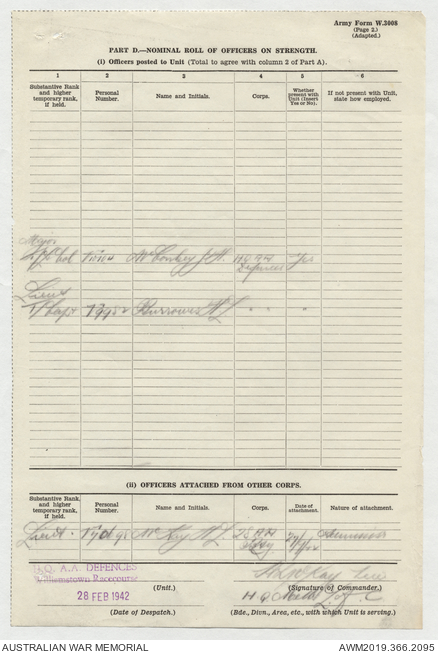 Army Form W.3008
(Page 2.)
(Adapted.)
PART D.—NOMINAL ROLL OF OFFICERS ON STRENGTH.
(i) Officers posted to Unit (Total to agree with column 2 of Part A).
1 2 3 4 5 6
Substantive Rank and higher temporary rank, if held.
Personal Number.
Name and Initials.
Corps.
Whether present with Unit (Insert Yes or No).
If not present with Unit, state how employed.
Major
Yes
Lieut
T/Capt Burrows
(ii) OFFICERS ATTACHED FROM OTHER CORPS.
Substantive Rank, and higher temporary rank, if held.
Personal Number.
Name and Initials.
Corps.
Date of attachment.
Nature of attachment.
Lieut. McKay
H.Q. A.A. DEFENCES
Williamstown Racecourse
(Unit.)
(Signature of Commander.)
28 FEB 1942
(Date of Despatch.)
(Bde., Divn., Area, etc., with which Unit is serving.)
AUSTRALIAN WAR MEMORIAL
AWM2019.366.2095